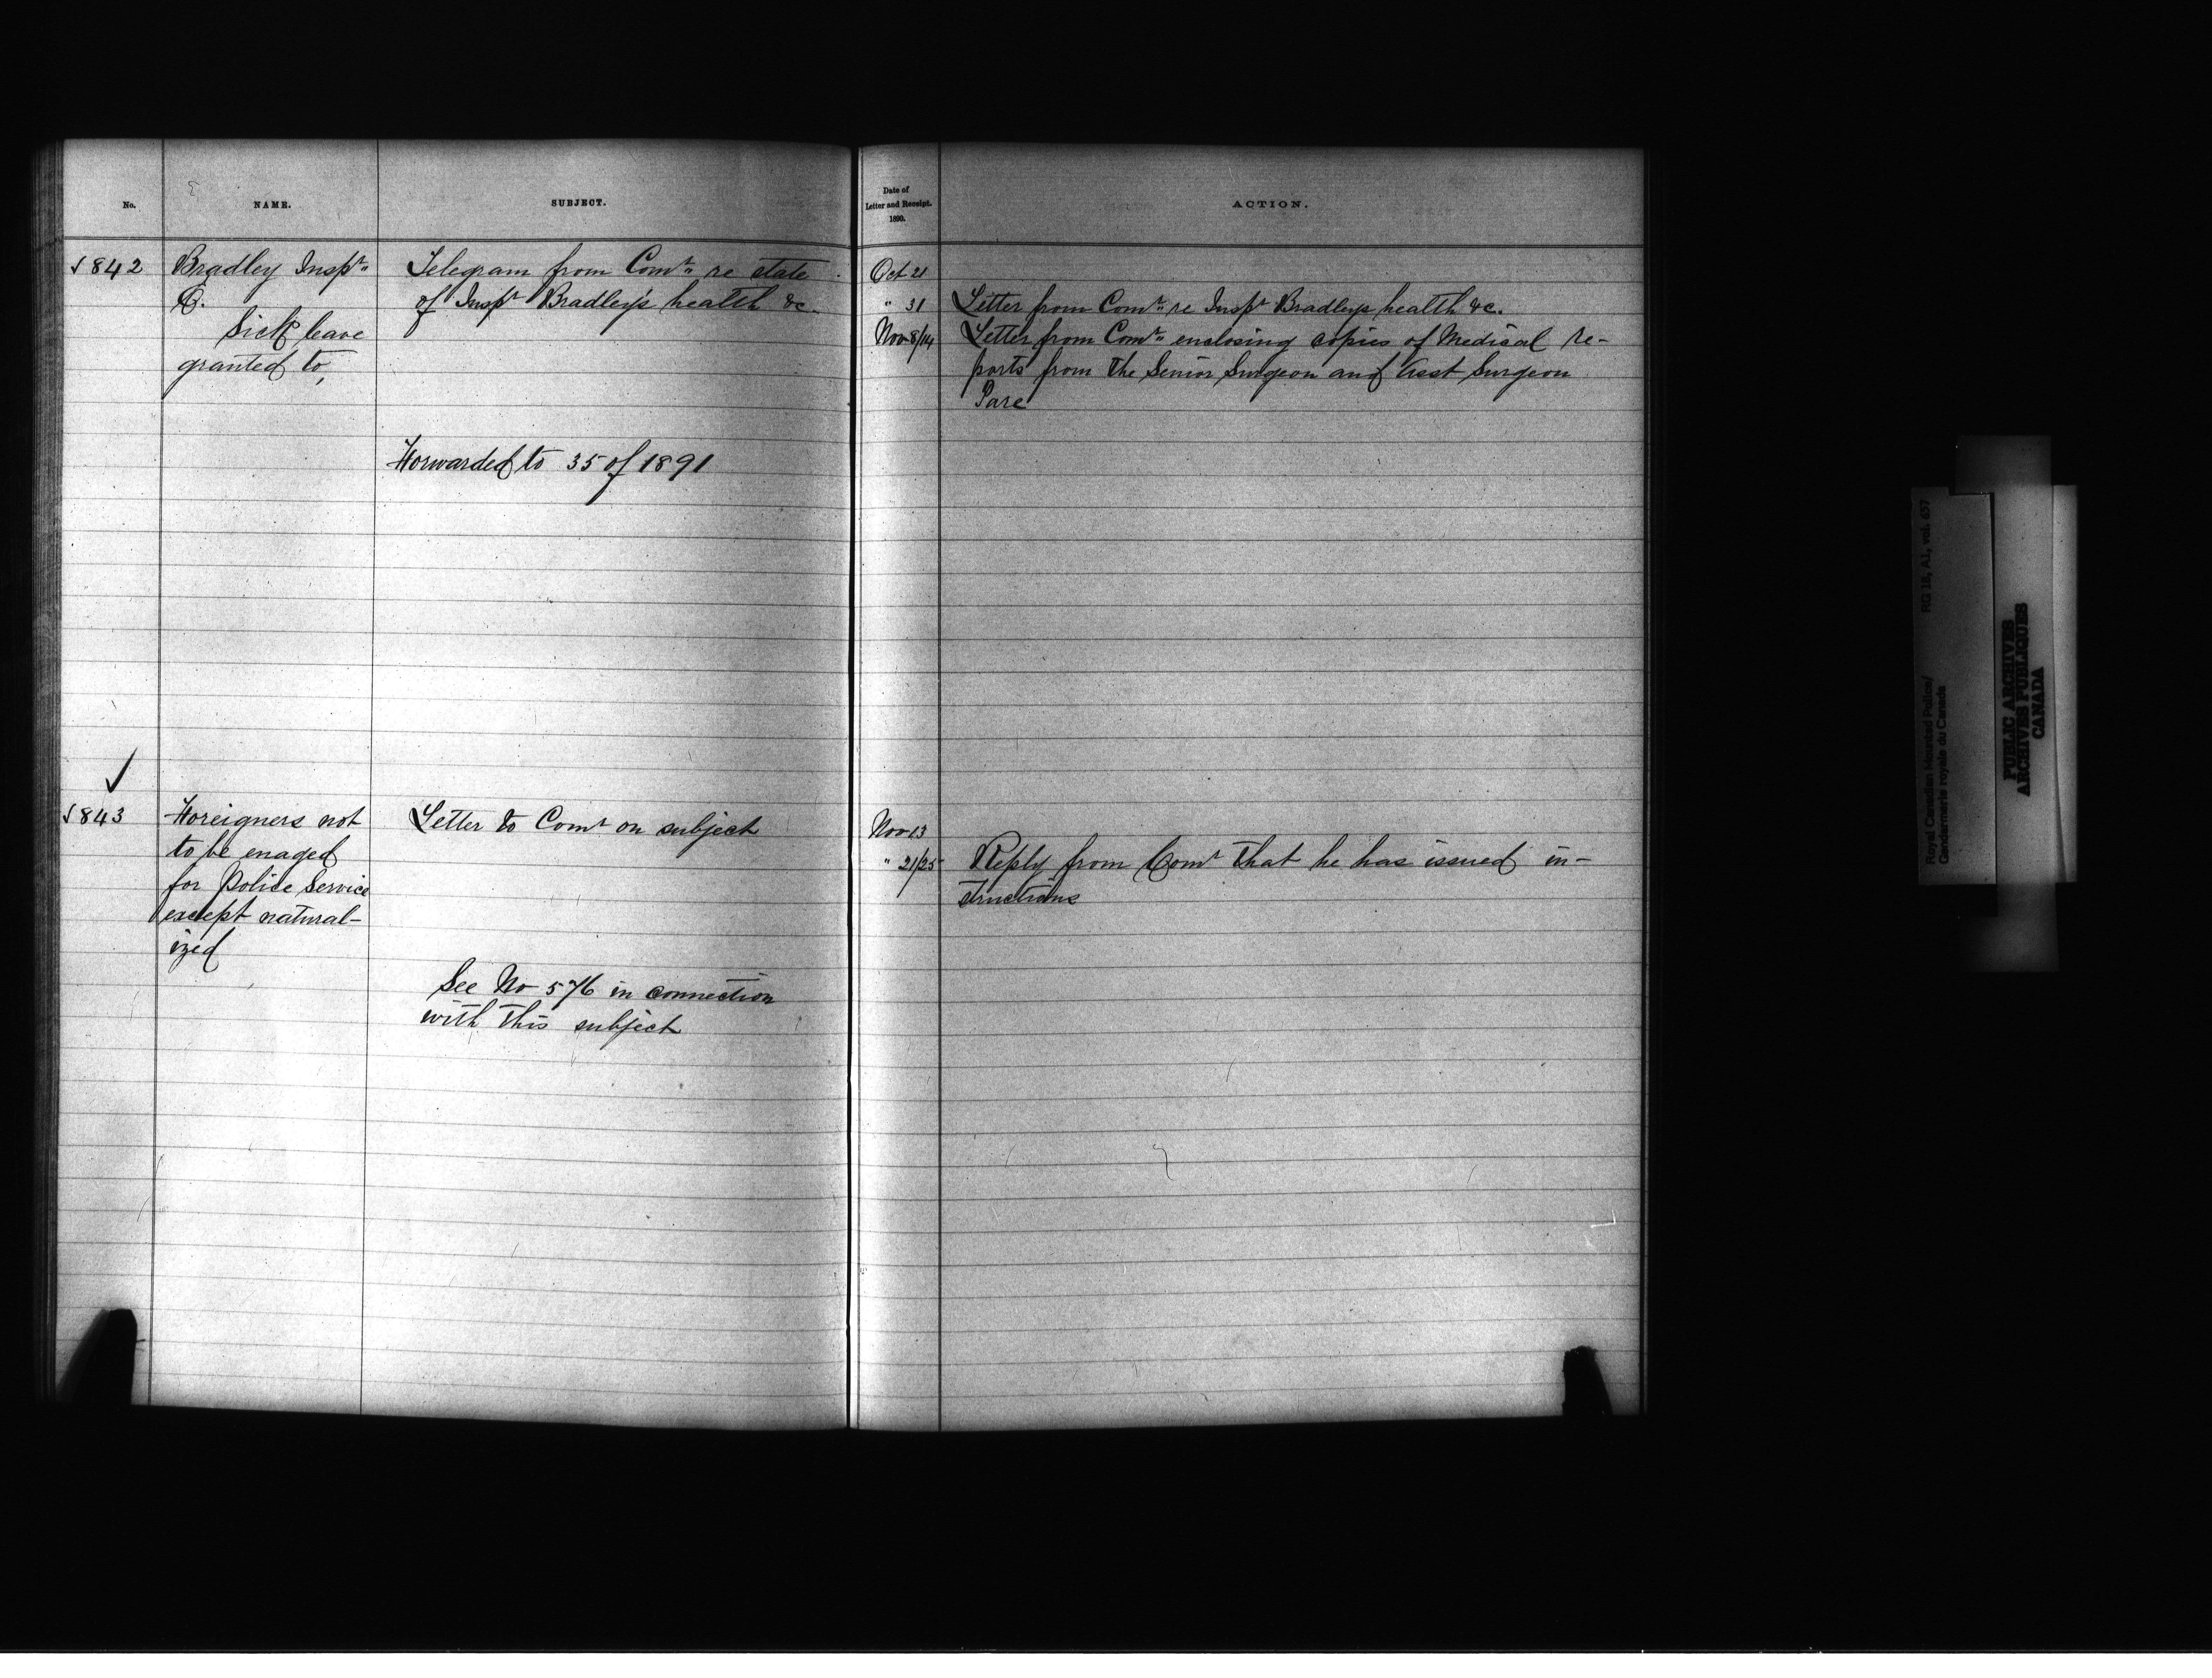 No.
NAME.
SUBJECT.
Date of
Letter and Receipt.
1890.
ACTION.
✓842
Bradley Inspr.
C.
Sick leave
granted to,
Telegram from Comr. re state
of Inspr Bradley's health &c.
Forwarded to 35 of 1891
Oct 21
" 31
Nov 8/14
Letter from Comr. re Inspr Bradleys health &c.
Letter from Comr. enclosing copies of Medical re-
ports from the Senior Surgeon and Asst Surgeon
Pare
✓
✓843
Foreigners not
to be enaged
for Police Service
except natural-
ized
Letter to Comr on subject
See No 576 in connection
with this subject
Nov 13
" 21/25
Reply from Comr that he has issued in-
structions
Royal Canadian Mounted Police/
Gendarmerie royale du Canada
RG 18, A1, vol. 657
PUBLIC ARCHIVES
ARCHIVES PUBLIQUES
CANADA